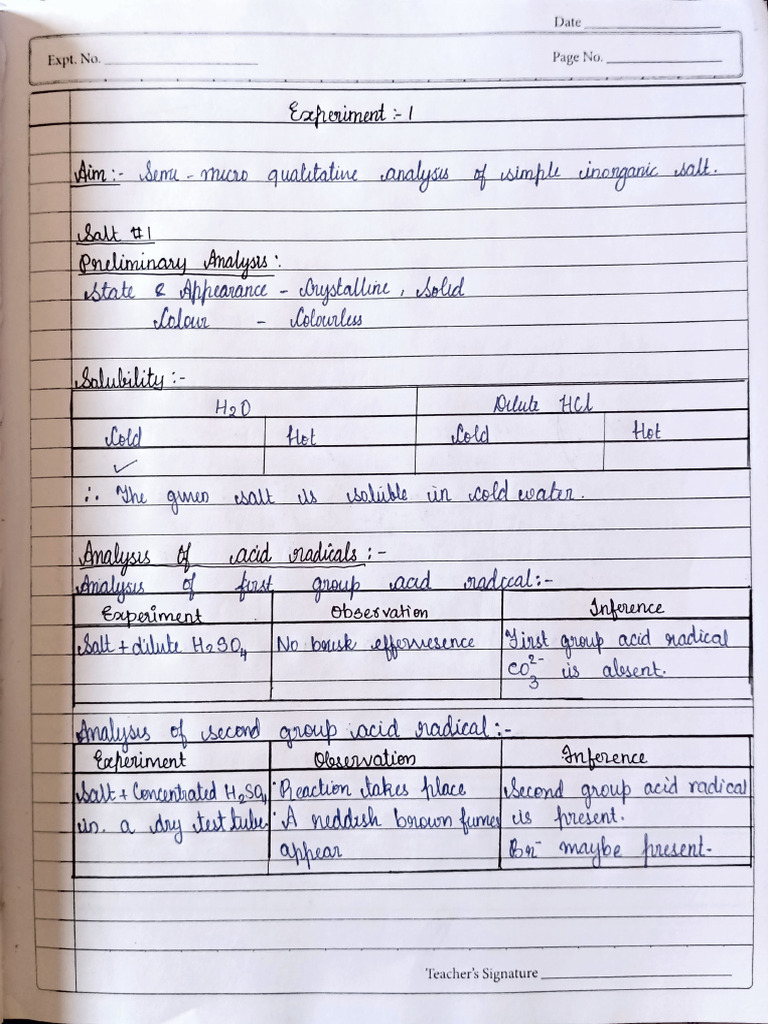 Date
Expt. No.
Page No.
Experiment :- 1
Aim :- Semi - micro qualitative analysis of simple inorganic salt.
Salt #1
Preliminary Analysis :
State & Appearance - Crystalline, Solid
Colour - Colourless
Solubility :-
H2O Dilute HCl
Cold Hot Cold Hot
✓
∴ The given salt is soluble in cold water.
Analysis of acid radicals :-
Analysis of first group acid radical :-
Experiment Observation Inference
Salt + dilute H2SO4 No brisk effervesence First group acid radical
CO3^2- is absent.
Analysis of second group acid radical :-
Experiment Observation Inference
Salt + Concentrated H2SO4 · Reaction takes place Second group acid radical
in. a dry test tube. · A reddish brown fumes is present.
appear Br- maybe present.
Teacher's Signature